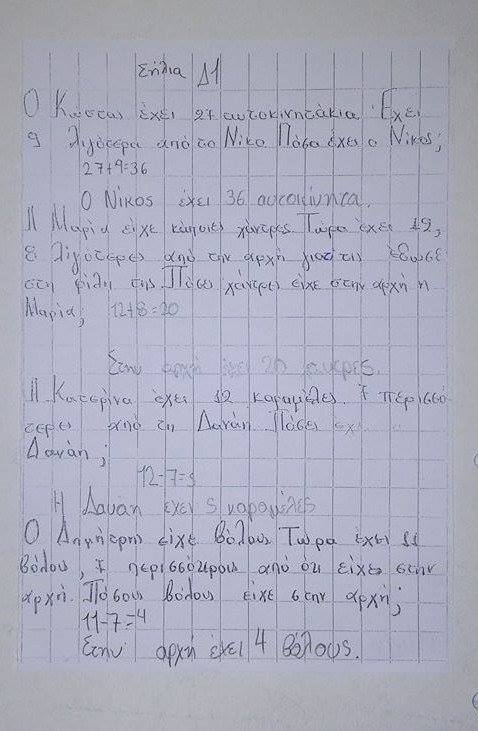 Στήλια Δ1
Ο Κώστας έχει 27 αυτοκινητάκια. Έχει
9 λιγότερα από το Νίκο. Πόσα έχει ο Νίκος;
27+9=36
Ο Νίκος έχει 36 αυτοκίνητα.
Η Μαρία είχε κάποιες χάντρες. Τώρα έχει 12,
8 λιγότερες από την αρχή γιατί τις έδωσε
στη φίλη της. Πόσες χάντρες είχε στην αρχή η
Μαρία; 12+8=20
Στην αρχή έχει 20 χάντρες.
Η Κατερίνα έχει 12 καραμέλες. 7 περισσό
τερες από τη Δανάη. Πόσες έχει
Δανάη;
12-7=5
Η Δανάη έχει 5 καραμέλες
Ο Δημήτρης είχε βόλους. Τώρα έχει 11
βόλους, 7 περισσότερους από ότι είχε στην
αρχή. Πόσους βόλους είχε στην αρχή;
11-7=4
Στην αρχή έχει 4 βόλους.